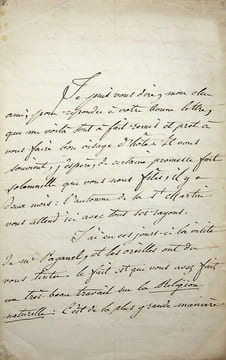 Je puis vous dire, mon cher
ami, pour répondre à votre bonne lettre,
que me voilà tout à fait remis et prêt à
vous faire bon visage d'hôte. Il vous
souvient, j'espère, de certaine promesse fort
solennelle que vous nous fîtes, il y a
deux mois: l'automne de la St Martin
vous attend ici avec tous ses rayons.
J'ai eu ces jours-ci la visite
de Mr Papanel, et les oreilles ont dû
vous tinter. le fait est que vous avez fait
un très beau travail sur la Religion
naturelle. C'est de la plus grande manière